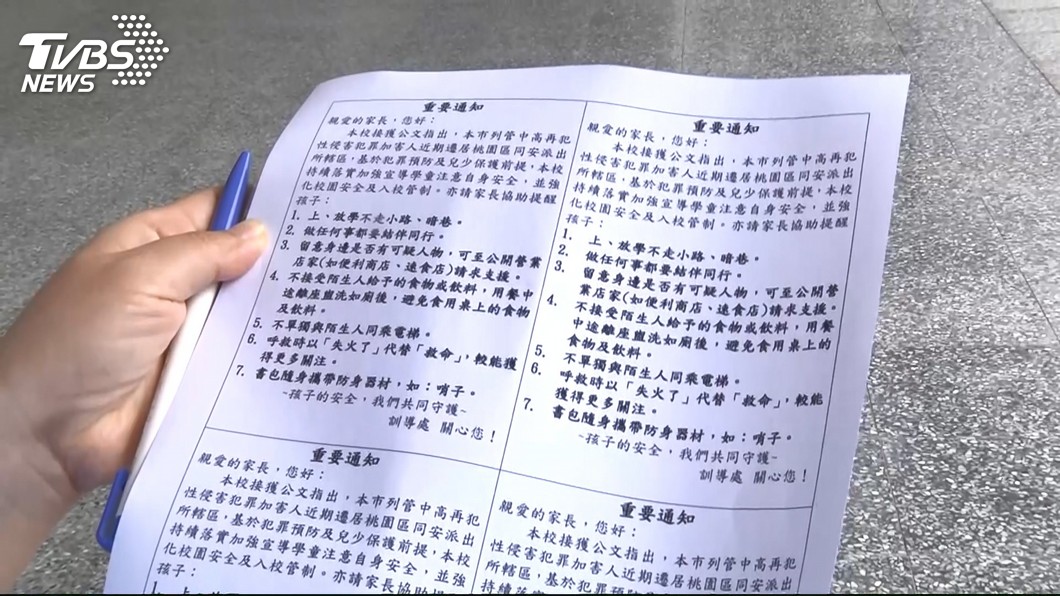 TVBS
NEWS
重要通知
親愛的家長，您好：
本校接獲公文指出，本市列管中高再犯
性侵害犯罪加害人近期遷居桃園區同安派出
所轄區，基於犯罪預防及兒少保護前提，本校
持續落實加強宣導學童注意自身安全，並強
化校園安全及入校管制。亦請家長協助提醒
孩子：
1. 上、放學不走小路、暗巷。
2. 做任何事都要結伴同行。
3. 留意身邊是否有可疑人物，可至公開營業
店家(如便利商店、速食店)請求支援。
4. 不接受陌生人給予的食物或飲料，用餐中
途離座盥洗如廁後，避免食用桌上的食物
及飲料。
5. 不單獨與陌生人同乘電梯。
6. 呼救時以「失火了」代替「救命」，較能獲
得更多關注。
7. 書包隨身攜帶防身器材，如：哨子。
~孩子的安全，我們共同守護~
訓導處 關心您！
重要通知
親愛的家長，您好：
本校接獲公文指出，本市列管中高再犯
性侵害犯罪加害人近期遷居桃園區同安派出
所轄區，基於犯罪預防及兒少保護前提，本校
持續落實加強宣導學童注意自身安全，並強
化校園安全及入校管制。亦請家長協助提醒
孩子：
1. 上、放學不走小路、暗巷。
2. 做任何事都要結伴同行。
3. 留意身邊是否有可疑人物，可至公開營
業店家(如便利商店、速食店)請求支援。
4. 不接受陌生人給予的食物或飲料，用餐
中途離座盥洗如廁後，避免食用桌上的
食物及飲料。
5. 不單獨與陌生人同乘電梯。
6. 呼救時以「失火了」代替「救命」，較能
獲得更多關注。
7. 書包隨身攜帶防身器材，如：哨子。
~孩子的安全，我們共同守護~
訓導處 關心您！
重要通知
親愛的家長，您好：
本校接獲公文指出，本市列管中高再犯
性侵害犯罪加害人近期遷居桃園區同安派出
所轄區，基於犯罪預防及兒少保護前提，本校
持續落實加強宣導學童注意自身安全，並強
化校園安全及入校管制。亦請家長協助提醒
孩子：
重要通知
親愛的家長，您好：
本校接獲公文指出，本市列管中高再犯
性侵害犯罪加害人近期遷居桃園區同安派出
所轄區，基於犯罪預防及兒少保護前提，本校
持續落實加強宣導學童注意自身安全，並強